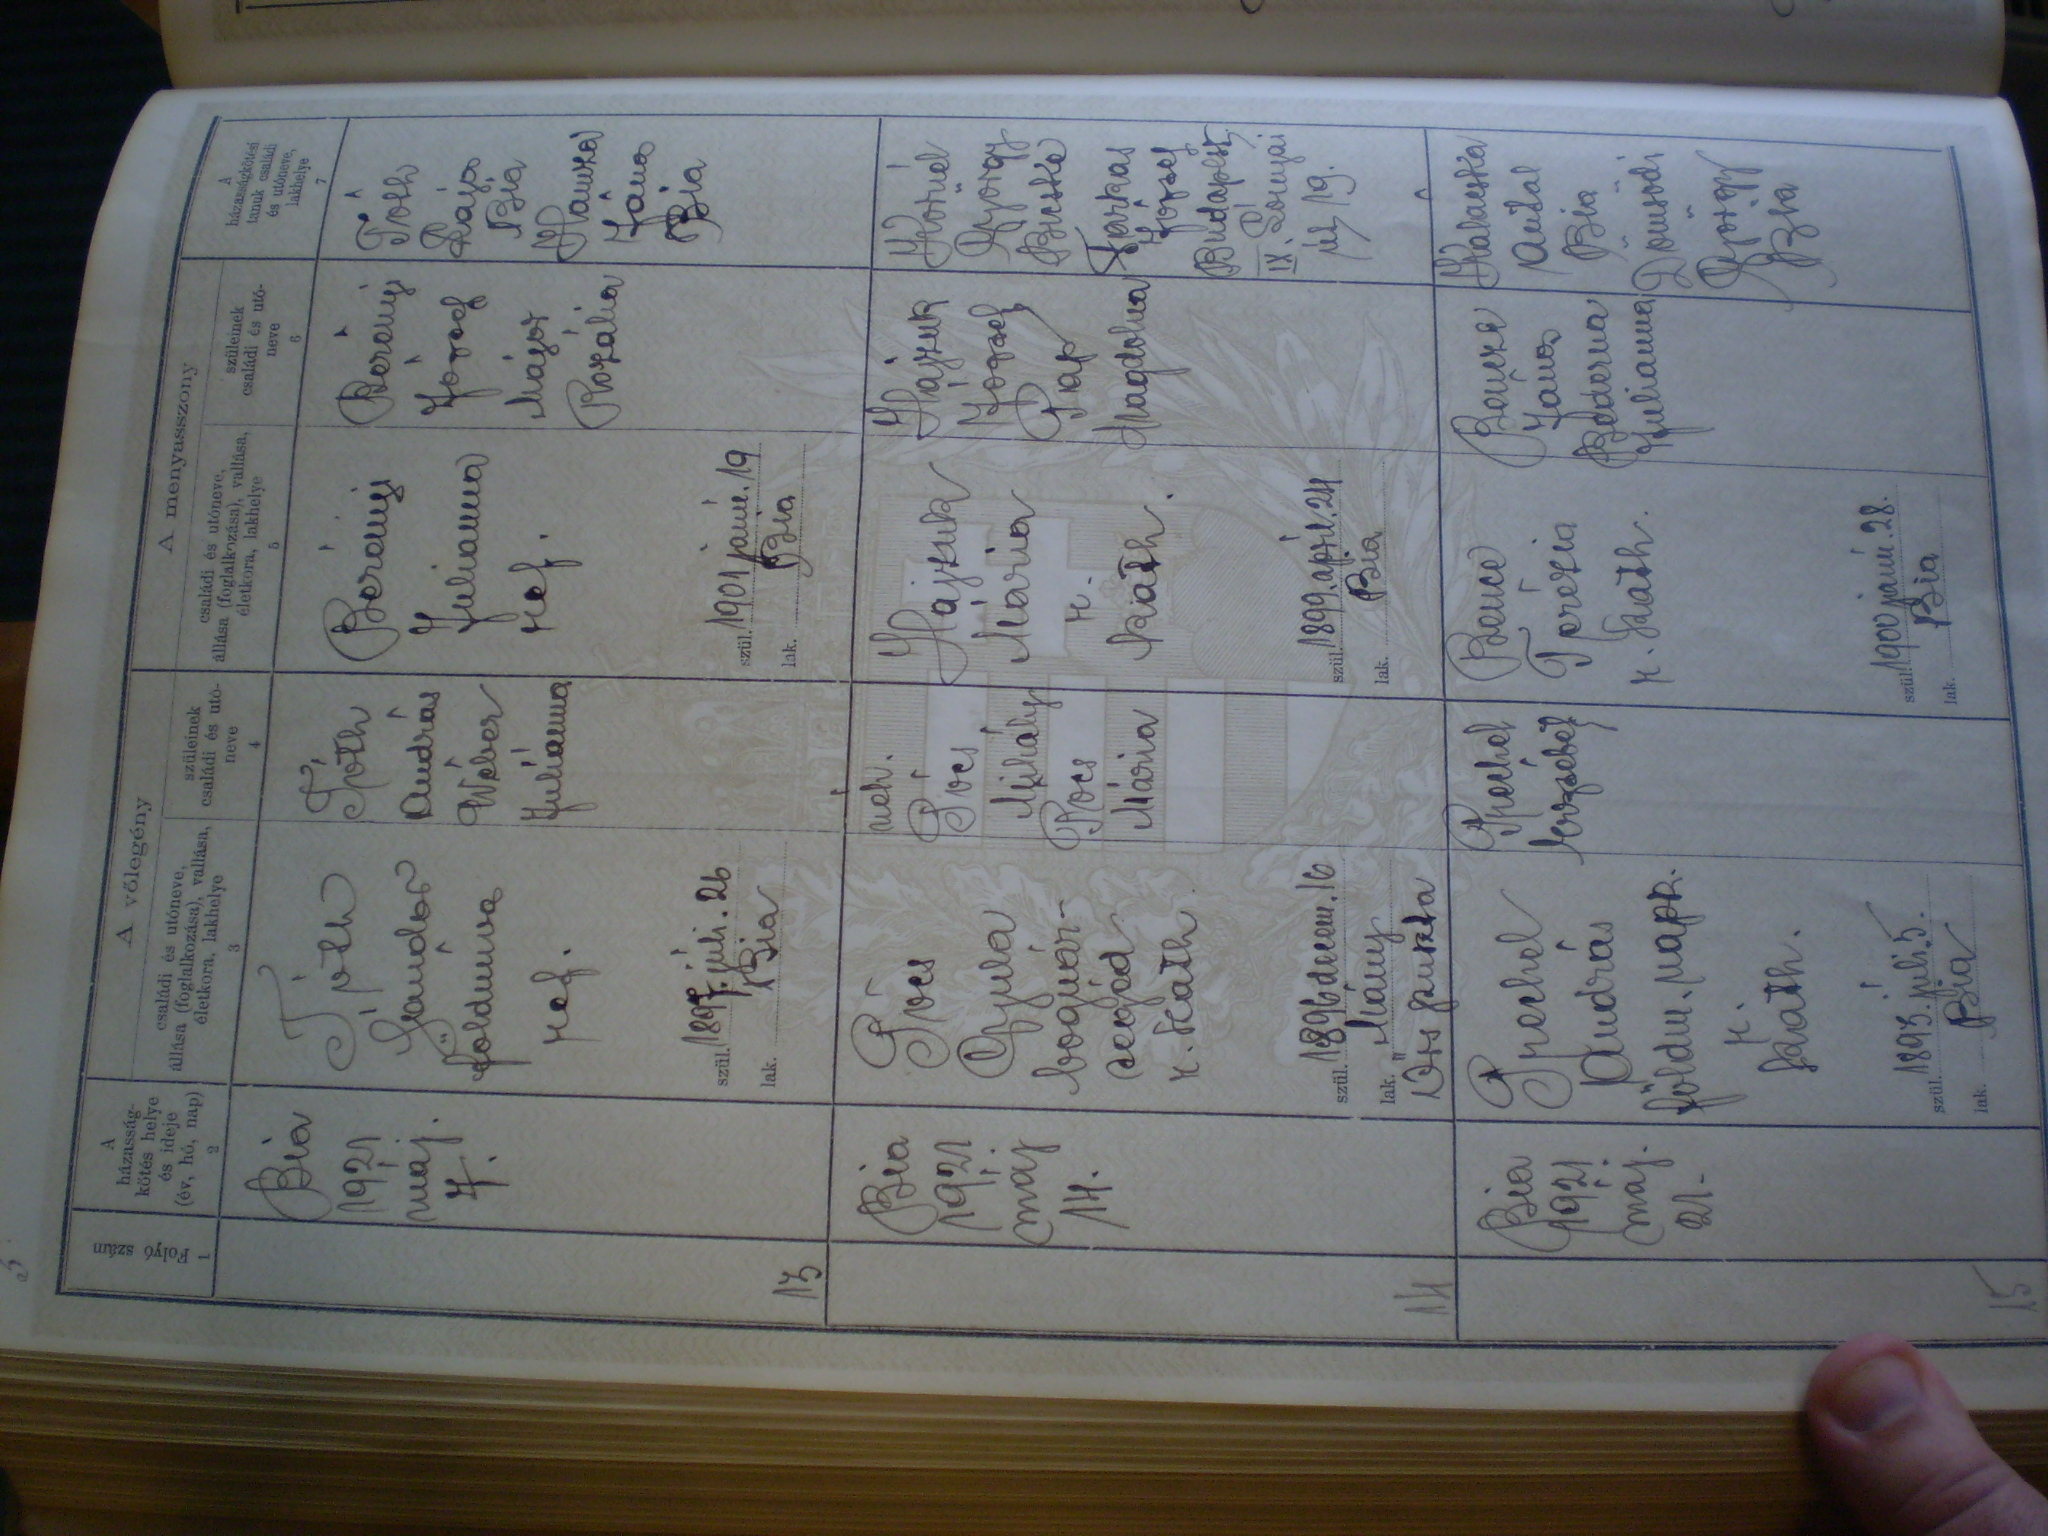 A
házasság-
kötés helye
és ideje
(év, hó, nap)
2
1
Folyó szám
A vőlegény
családi és utóneve,
állása (foglalkozása), vallása,
életkora, lakhelye
3
szüleinek
családi és utó-
neve
4
A menyasszony
családi és utóneve,
állása (foglalkozása), vallása,
életkora, lakhelye
5
szüleinek
családi és utó-
neve
6
A
házasságkötési
tanuk családi
és utóneve,
lakhelye
7
13
Bia
1921
máj.
7.
Tóth
Sándor
földműves
ref.
szül. 1897. júli. 26
lak. Bia
Tóth
András
Wéber
Juliánna
Borányi
Julianna
ref.
szül. 1901 júni. 19
lak. Bia
Borányi
József
Májor
Rozália
Tóth
Lájos
Bia
Hancza
János
Bia
14
Bia
1921.
máj
14.
Pócs
Gyula
bognár-
segéd
r. kath.
szül. 1896 decem. 16
lak. Mány
Örs puszta
néh.
Pócs
Mihály
Pócs
Mária
Hájzuk
Mária
r.
kath.
szül. 1899. ápril. 24
lak. Bia
Hájzuk
József
Pap
Magdolna
György
Bicske
Farkas
József
Budapest,
IX. Soroksári
út 19.
15
Bia
1921.
máj.
21.
Prechel
András
földm. naps.
r.
kath.
szül. 1893. júli. 5.
lak. Bia
Prechel
Erzsébet
Bencze
Terézia
r. kath.
szül. 1900 júni. 28.
lak. Bia
Bencze
János
Bodorna
Julianna
Antal
Bia
Dömsödi
György
Bia